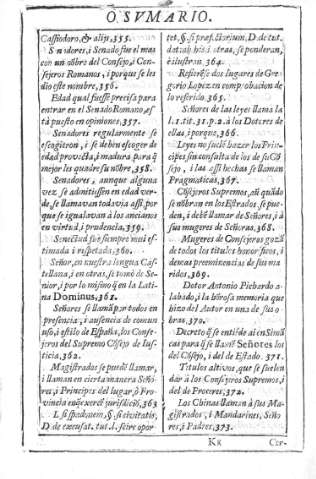 O, SVMARIO.
Cassiodoro, & alijs, 355.
Seniores, i Senado fue el mesmo
con un nōbre del Consejo, i Consejeros
Romanos, i porque se les
dio este nombre, 356.
Edad qual fuesse precisa para
entrar en el Senado Romano, está
puesto en opiniones, 357.
Senadores regularmente se
escogieron, i se deben escoger de
edad provecta, i madura para q̃
mejor les quadre su nōbre, 358.
Senadores, aunque alguna
vez se admitiessen en edad verde,
se llamavan todavia assi porque
se igualavan à los ancianos
en virtud, i prudencia, 359.
Senectud fue siempre mui estimada
i respetada, 360.
Señor, en nuestra lengua Castellana,
i en otras, se tomò de Senior,
i por lo mismo q̃ en la Latina
Dominus, 361.
Señores se llamã por todos en
presencia, i ausencia de comun
uso, i estilo de España, los Consejeros
del Supremo Cōsejo de Iusticia,
362.
Magistrados se puedē llamar,
i llaman en cierta manera Señores,
i Principes del lugar, ò Provincia
en q̃ exercē jurisdiciō, 363
L. si spadonem, §. si civitatis,
D. de excusat. tut. l. scire oportet.
§. si præfectorium, D. de tutdat
ab his i otras, se ponderan,
è ilustran. 364.
Refierēse dos lugares de Gregorio
Lopez en comprobacion de
lo referido. 365.
Señores de las leyes llama la
l. 1. tit. 31. p. 2. à los Dotores de
ellas, i porque, 366.
Leyes no suelē hazer los Principes
sin consulta de los de su Cōsejo,
i las assi hechas se llaman
Pragmaticas, 367.
Cōsejeros Supremos, aū quādo
se nōbran en los Estrados, se pueden,
i debē llamar de Señores, i à
sus mugeres de Señoras, 368.
Mugeres de Consejeros gozā
de todos los titulos honorificos, i
demas preeminencias de sus maridos,
369.
Dotor Antonio Pichardo alabado,
i la hōrosa memoria que
hizo del Autor en una de sus obras,
370.
Decreto q̃ se entiēde ai en Simācas
para q̃ se llamē Señores los
del Cōsejo, i del de Estado. 371.
Titulos altivos, que se suelen
dar à los Consejeros Supremos, i
del de Proceres, 372.
Los Chinas llaman à sus Magistrados,
i Mandarines, Señores,
i Padres, 373.
Kk Cer-